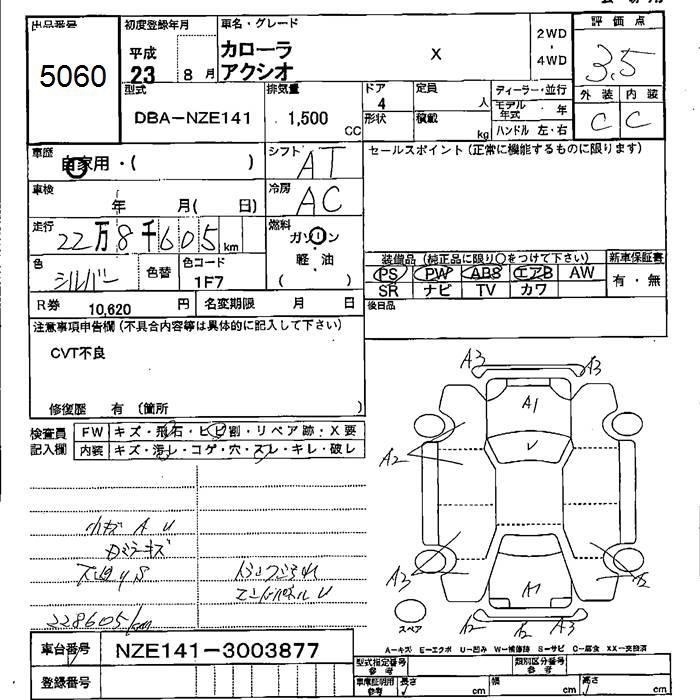 出品番号
5060
初度登録年月
平成
23 8 月
車名・グレード
カローラ
アクシオ
X
2WD
・
4WD
評価点
3.5
外装 内装
C C
型式
DBA-NZE141
排気量
1,500
CC
ドア
4
定員
人
形状
積載
kg
ディーラー・並行
モデル年式 ・ 年
ハンドル 左・右
車歴
自家用・( )
シフト
AT
セールスポイント(正常に機能するものに限ります)
車検
年 月( 日)
冷房
AC
走行
22万8千605 km
燃料
ガソリン
軽・油
( )
色
シルバー
色替
色コード
1F7
装備品(純正品に限り○をつけて下さい)
PS PW ABS エアB AW
SR ナビ TV カワ
新車保証書
有・無
R券 10,620 円
名変期限 月 日
後日品
注意事項申告欄(不具合内容等は具体的に記入して下さい)
CVT不良
修復歴 有 (箇所 )
検査員
記入欄
FW キズ・飛石・ヒビ割・リペア跡・X要
内装 キズ・汚レ・コゲ・穴・スレ・キレ・破レ
小キズ A U
228605/km
エンドパネル U
A3
A3
A1
A2
U
A3
A2
A1
A2
A2
A3
スペア
A-キズ E-エクボ U-凹み W-補修跡 S-サビ C-腐食 XX-交換済
車台番号
NZE141-3003877
登録番号
型式指定番号
参考
類別区分番号
参考
車庫証明用
参考
長さ cm
幅 cm
高さ cm